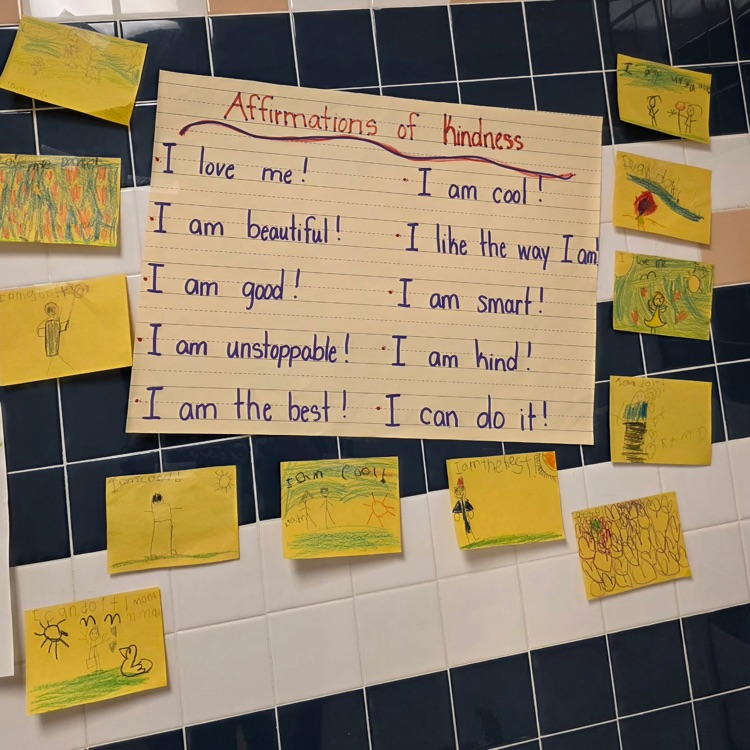 Affirmations of Kindness
I love me!
I am beautiful!
I am good!
I am unstoppable!
I am the best!
I am cool!
I like the way I am!
I am smart!
I am kind!
I can do it!
I am
love me
I am cool!
I am the best
I can do it